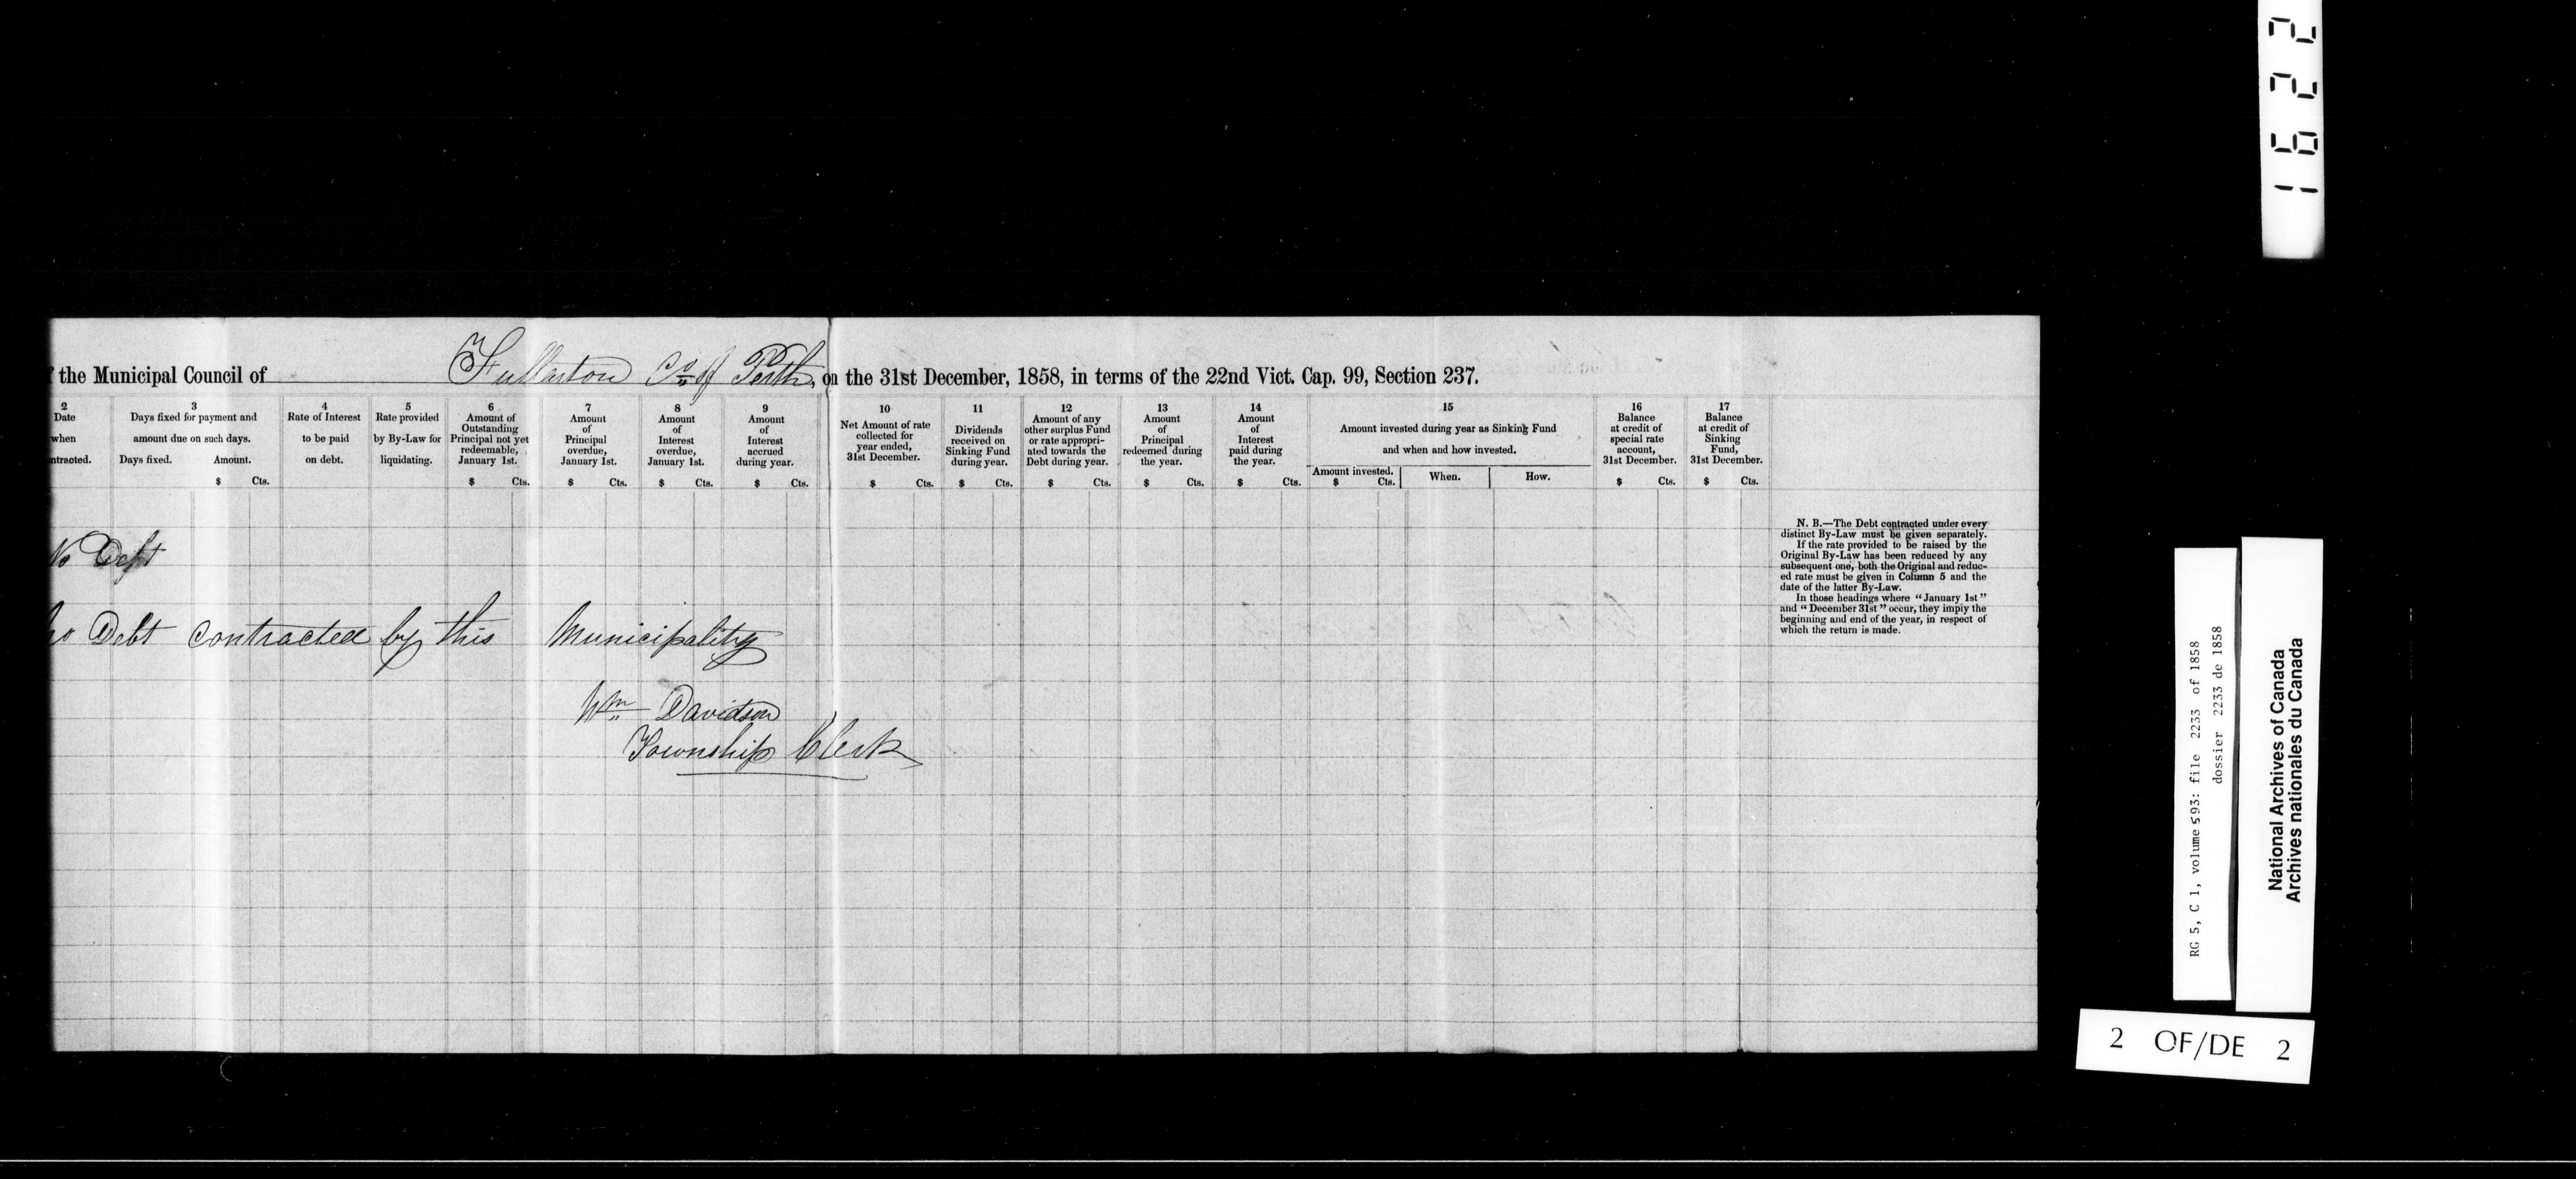 1622
the Municipal Council of Fullarton Co of Perth, on the 31st December, 1858, in terms of the 22nd Vict. Cap. 99, Section 237.
2
Date
when
ntracted.
3
Days fixed for payment and
amount due on such days.
Days fixed. Amount.
$ Cts.
4
Rate of Interest
to be paid
on debt.
5
Rate provided
by By-Law for
liquidating.
6
Amount of
Outstanding
Principal not yet
redeemable,
January 1st.
$ Cts.
7
Amount
of
Principal
overdue,
January 1st.
$ Cts.
8
Amount
of
Interest
overdue,
January 1st.
$ Cts.
9
Amount
of
Interest
accrued
during year.
$ Cts.
10
Net Amount of rate
collected for
year ended,
31st December.
$ Cts.
11
Dividends
received on
Sinking Fund
during year.
$ Cts.
12
Amount of any
other surplus Fund
or rate appropri-
ated towards the
Debt during year.
$ Cts.
13
Amount
of
Principal
redeemed during
the year.
$ Cts.
14
Amount
of
Interest
paid during
the year.
$ Cts.
15
Amount invested during year as Sinking Fund
and when and how invested.
Amount invested. When. How.
$ Cts.
16
Balance
at credit of
special rate
account,
31st December.
$ Cts.
17
Balance
at credit of
Sinking
Fund,
31st December.
$ Cts.
No Debt
No Debt contracted by this Municipality
Wm Davidson
Township Clerk
N. B.—The Debt contracted under every
distinct By-Law must be given separately.
If the rate provided to be raised by the
Original By-Law has been reduced by any
subsequent one, both the Original and reduc-
ed rate must be given in Column 5 and the
date of the latter By-Law.
In those headings where "January 1st"
and "December 31st" occur, they imply the
beginning and end of the year, in respect of
which the return is made.
RG 5, C 1, volume 593: file 2233 of 1858
dossier 2233 de 1858
National Archives of Canada
Archives nationales du Canada
2 OF/DE 2